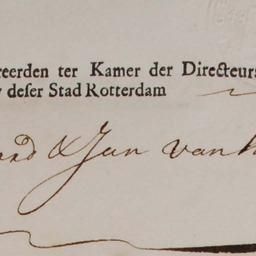 reerden ter Kamer der Directeurs
deſer Stad Rotterdam
& Jan van